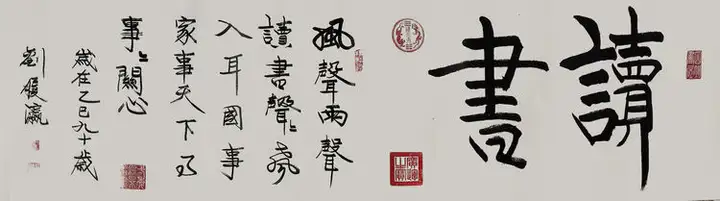 讀書
風聲雨聲
讀書聲〻聲
入耳國事
家事天下事
事〻關心
歲在乙巳九十歲
劉 瀛